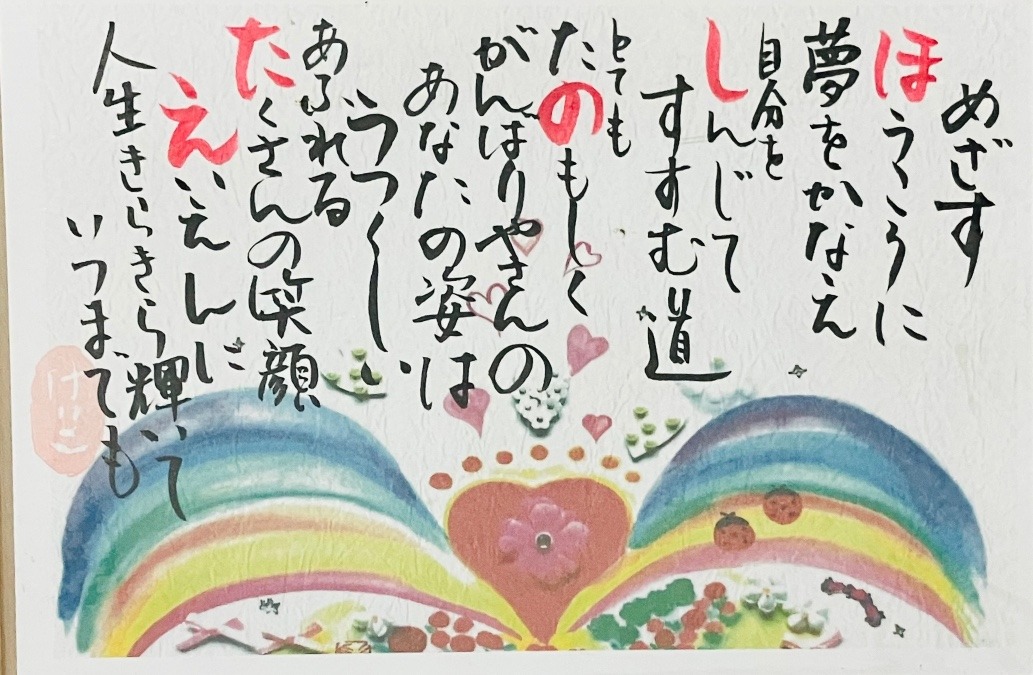 めざす
ほうこうに
夢をかなえ
自分を
しんじて
すすむ道
とても
たのもしく
がんばりやさんの
あなたの姿は
うつくしい
あふれる
たくさんの笑顔
えいえんに
人生きらきら輝いて
いつまでも
けいこ